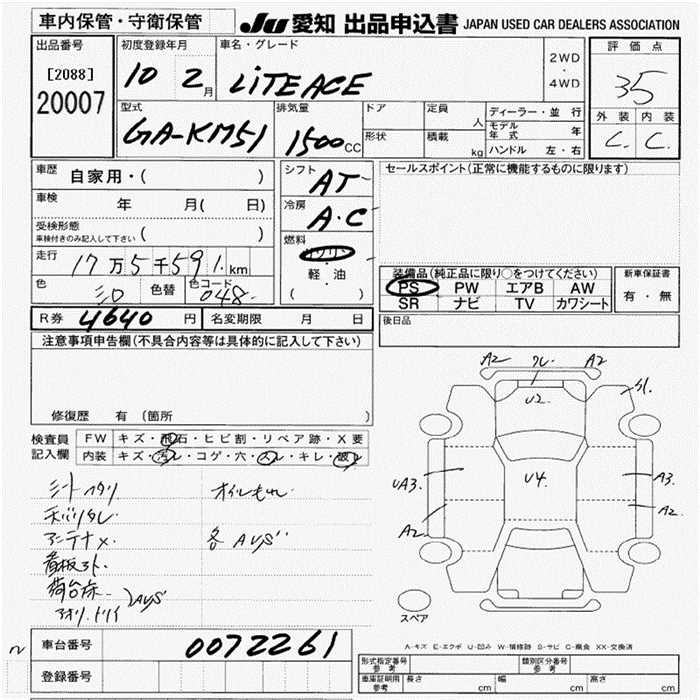 車内保管・守衛保管 JU 愛知 出品申込書 JAPAN USED CAR DEALERS ASSOCIATION
出品番号 初度登録年月 車名・グレード 2WD・4WD 評価点
[2088] 10 2月 LiTEACE 35
20007
型式 排気量 ドア 定員 人 ディーラー・並行 外装 内装
GA-KM51 1500CC 形状 積載 kg モデル年式 年 C. C.
ハンドル 左・右
車歴 自家用・( ) シフト AT セールスポイント(正常に機能するものに限ります)
車検 年 月( 日) 冷房 A・C
受検形態
車検付きのみ記入して下さい ( ) 燃料 ガソリン・軽油 ( )
走行 17万5千591km 装備品(純正品に限り○をつけてください) 新車保証書
色 シロ 色替 色コード 048 PS PW エアB AW 有・無
SR ナビ TV カワシート
R券 4640円 名変期限 月 日 後日品
注意事項申告欄(不具合内容等は具体的に記入して下さい)
修復歴 有 (箇所
検査員 FW キズ・飛石・ヒビ割・リペア跡・X要
記入欄 内装 キズ・汚レ・コゲ・穴・スレ・キレ・破レ
A2 クレ A2
U2 S1
U4
UA3. A3.
A2 A2.
シートヘタリ オイルもれ
アンテナ× 各AUS"
看板アト.
荷台床
アオリ.トリイ AUS
スペア
A-キズ E-エクボ U-凹み W-補修跡 S-サビ C-腐食 XX-交換済
車台番号 0072261
登録番号
形式指定番号 参考 類別区分番号 参考
車庫証明用 参考 長さ cm 幅 cm 高さ cm